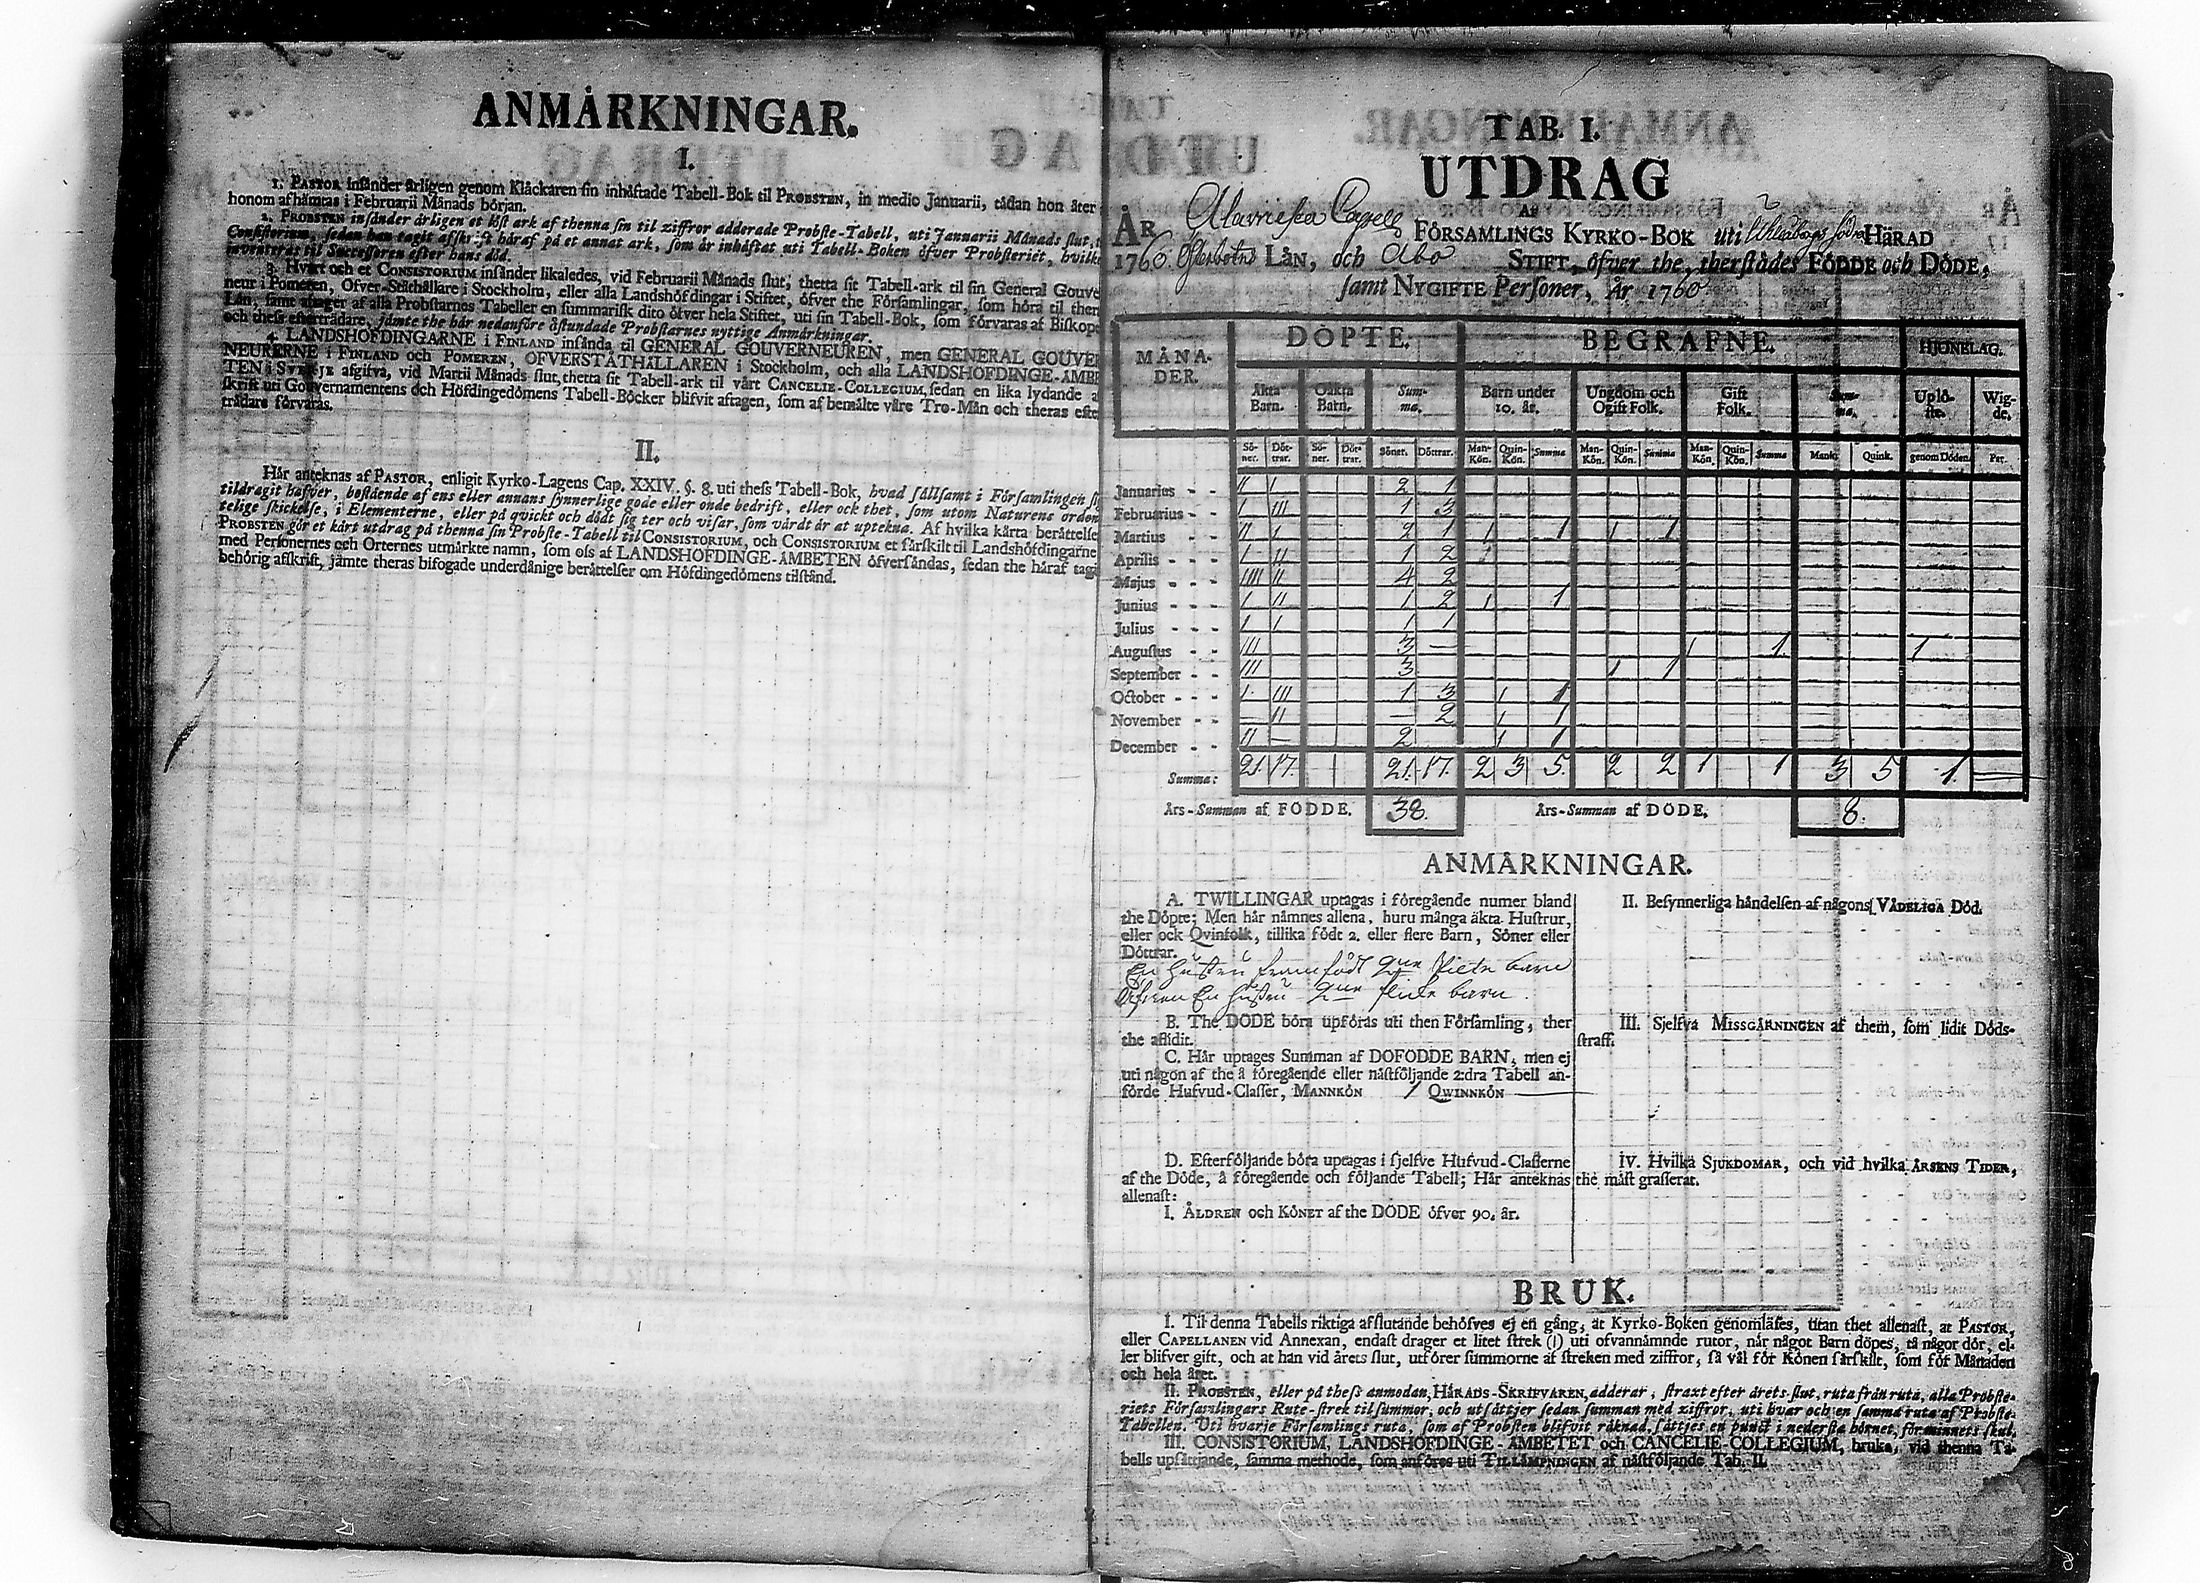 ANMÄRKNINGAR.
I.
1. PASTOR insänder årligen genom Klåckaren sin inhäftade Tabell-Bok til PROBSTEN, in medio Januarii, tådan hon åter
honom afhämtas i Februarii Månads början.
2. PROBSTEN insänder årligen et löst ark af thenna sin til ziffror adderade Probste-Tabell, uti Januarii Månads slut,
Consistorium, sedan han tagit afskrift häraf på et annat ark, som är inhäftat uti Tabell-Boken öfver Probsteriet, hvilke
inventeras til Successoren efter hans död.
3. Hvart och et CONSISTORIUM insänder likaledes, vid Februarii Månads slut, thetta sit Tabell-ark til sin General Gouve
neur i Pomeren, Öfver-Ståthållare i Stockholm, eller alla Landshöfdingar i Stiftet, öfver the Församlingar, som höra til ther
Län, samt aftager af alla Probstarnes Tabeller en summarisk dito öfver hela Stiftet, uti sin Tabell-Bok, som förvaras af Biskope
och thess efterträdare, jämte the här nedanföre åstundade Probstarnes nyttige Anmärkningar.
4. LANDSHÖFDINGARNE i FINLAND insända til GENERAL GOUVERNEUREN, men GENERAL GOUVER
NEURERNE i FINLAND och POMEREN, ÖFVERSTÅTHÅLLAREN i Stockholm, och alla LANDSHÖFDINGE-ÄMBE
TEN i SVERJE afgifva, vid Martii Månads slut, thetta sit Tabell-ark til vårt CANCELIE-COLLEGIUM, sedan en lika lydande a
skrift uti Gouvernamentens och Höfdingedömens Tabell-Böcker blifvit aftagen, som af bemälte våre Tro-Män och theras efte
trädare förvaras.
II.
Här anteknas af PASTOR, enligit Kyrko-Lagens Cap. XXIV. §. 8. uti thess Tabell-Bok, hvad sällsamt i Församlingen sig
tildragit hafver, bestående af ens eller annans synnerlige gode eller onde bedrift, eller ock thet, som utom Naturens orden
telige skickelse, i Elementerne, eller på qvickt och dödt sig ter och visar, som värdt är at uptekna. Af hvilka kårta berättelse
PROBSTEN gör et kårt utdrag på thenna sin Probste-Tabell til CONSISTORIUM, och CONSISTORIUM et särskilt til Landshöfdingarne
med Personernes och Orternes utmärkte namn, som oss af LANDSHÖFDINGE-ÄMBETEN öfversändas, sedan the häraf tagi
behörig afskrift, jämte theras bifogade underdånige berättelser om Höfdingedömens tilstånd.
TAB. I.
UTDRAG
AF
ÅR Alavieska Capells FÖRSAMLINGS KYRKO-BOK uti Uhleåborgs Södra HÄRAD
1760. Österbotns LÄN, och Abo STIFT, öfver the, therstädes FÖDDE och DÖDE,
samt NYGIFTE Personer, År 1760
MÅNA-DER. DÖPTE. BEGRAFNE. HJONELAG.
Äkta Barn. Oäkta Barn. Sum-ma. Barn under 10. år. Ungdom och Ogift Folk. Gift Folk. Sum-ma. Uplö-ste. Wig-de.
Sö-ner. Döt-trar. Sö-ner. Döt-trar. Söner. Döttrar. Man-Kön. Quin-Kön. Summa Man-Kön. Quin-Kön. Summa Man-Kön. Quin-Kön. Summa Mank. Quink. genom Döden. Par.
Januarius - - II I 2 1
Februarius - - I III 1 3
Martius - - II I 2 1 1 1 1 1
Aprilis - - - I II 1 2 1
Majus - - - IIII II 4 2
Junius - - - I II 1 2 1 1
Julius - - - I I 1 1
Augustus - - III 3 — 1 1 1
September - - III 3 1 1
October - - - I III 1 3 1 1
November - - — II — 2 1 1
December - - II — 2 1 1
Summa: 21. 17. 21. 17. 2 3 5. 2 2 1 1 3 5 1. —
Års-Summan af FÖDDE. 38. Års-Summan af DÖDE. 8.
ANMÄRKNINGAR.
A. TWILLINGAR uptagas i föregående numer bland
the Döpte; Men här nämnes allena, huru många äkta Hustrur,
eller ock Qvinfolk, tillika födt 2. eller flere Barn, Söner eller
Döttrar.
En hustru framfödt 2ne barn
En hustru 2ne barn.
B. The DÖDE böra upföras uti then Församling, ther
the aflidit.
C. Här uptages Summan af DÖFÖDDE BARN, men ej
uti någon af the å föregående eller nästföljande 2:dra Tabell an-
förde Hufvud-Classer, MANNKÖN 1 QWINNKÖN —
D. Efterföljande böra uptagas i sjelfve Hufvud-Classerne
af the Döde, å föregående och följande Tabell; Här anteknas
allenast:
I. ÅLDREN och KÖNET af the DÖDE öfver 90. år.
II. Besynnerliga händelsen af någons VÅDELIGA Död.
III. Sjelfva MISSGÄRNINGEN af them, som lidit Döds-
straff.
IV. Hvilka SJUKDOMAR, och vid hvilka ÅRSENS TIDER,
the mäst grasserat.
BRUK.
I. Til denna Tabells riktiga afslutande behöfves ej en gång, at Kyrko-Boken genomläses, utan thet allenast, at PASTOR,
eller CAPELLANEN vid Annexan, endast drager et litet strek (I) uti ofvannämnde rutor, när något Barn döpes, tå någor dör, el-
ler blifver gift, och at han vid årets slut, utförer summorne af streken med ziffror, så väl för Könen särskilt, som för Månaden
och hela året.
II. PROBSTEN, eller på thess anmodan, HÄRADS-SKRIFVAREN, adderar, straxt efter årets slut, ruta från ruta, alla Probste-
riets Församlingars Rute-strek til summor, och utsättjer sedan summan med ziffror, uti hvar och en samma ruta af Probste-
Tabellen. Uti hvarje Församlings ruta, som af Probsten blifvit räknad, sättjes en punct i nedersta hörnet, för minnets skul.
III. CONSISTORIUM, LANDSHÖFDINGE-ÄMBETET och CANCELIE-COLLEGIUM, bruka, vid thenna Ta-
bells upsättjande, samma methode, som anföres uti TILLÄMPNINGEN af nästföljande Tab. II.